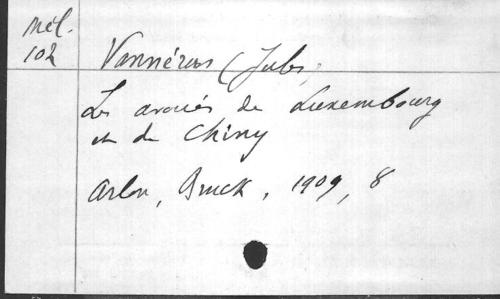 Mél.
102
Vannérus (Jules)
Les avoués de Luxembourg
et de Chiny
Arlon, Bruck, 1909, 8